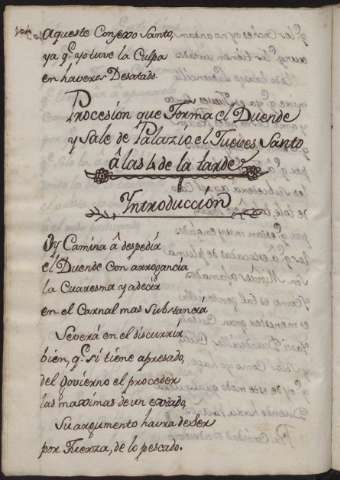 aqueste Consexo Santo,
ya q.e yo tuve la Culpa
en haveros Desatado.
Procesión que Forma el Duende
y Sale de Palazio el Jueves Santo
â las 4 de la tarde
Introducción
Oy Camina â despedir
el Duende con arrogancia
la Cuaresma y a decir
en el Carnal mas Substancia
Severá en el discurrir
bien, q.e si tiene apresado,
del govierno el proceder
las maximas de un
Su argumento havra de ser
por Fuerza, de lo pescado.